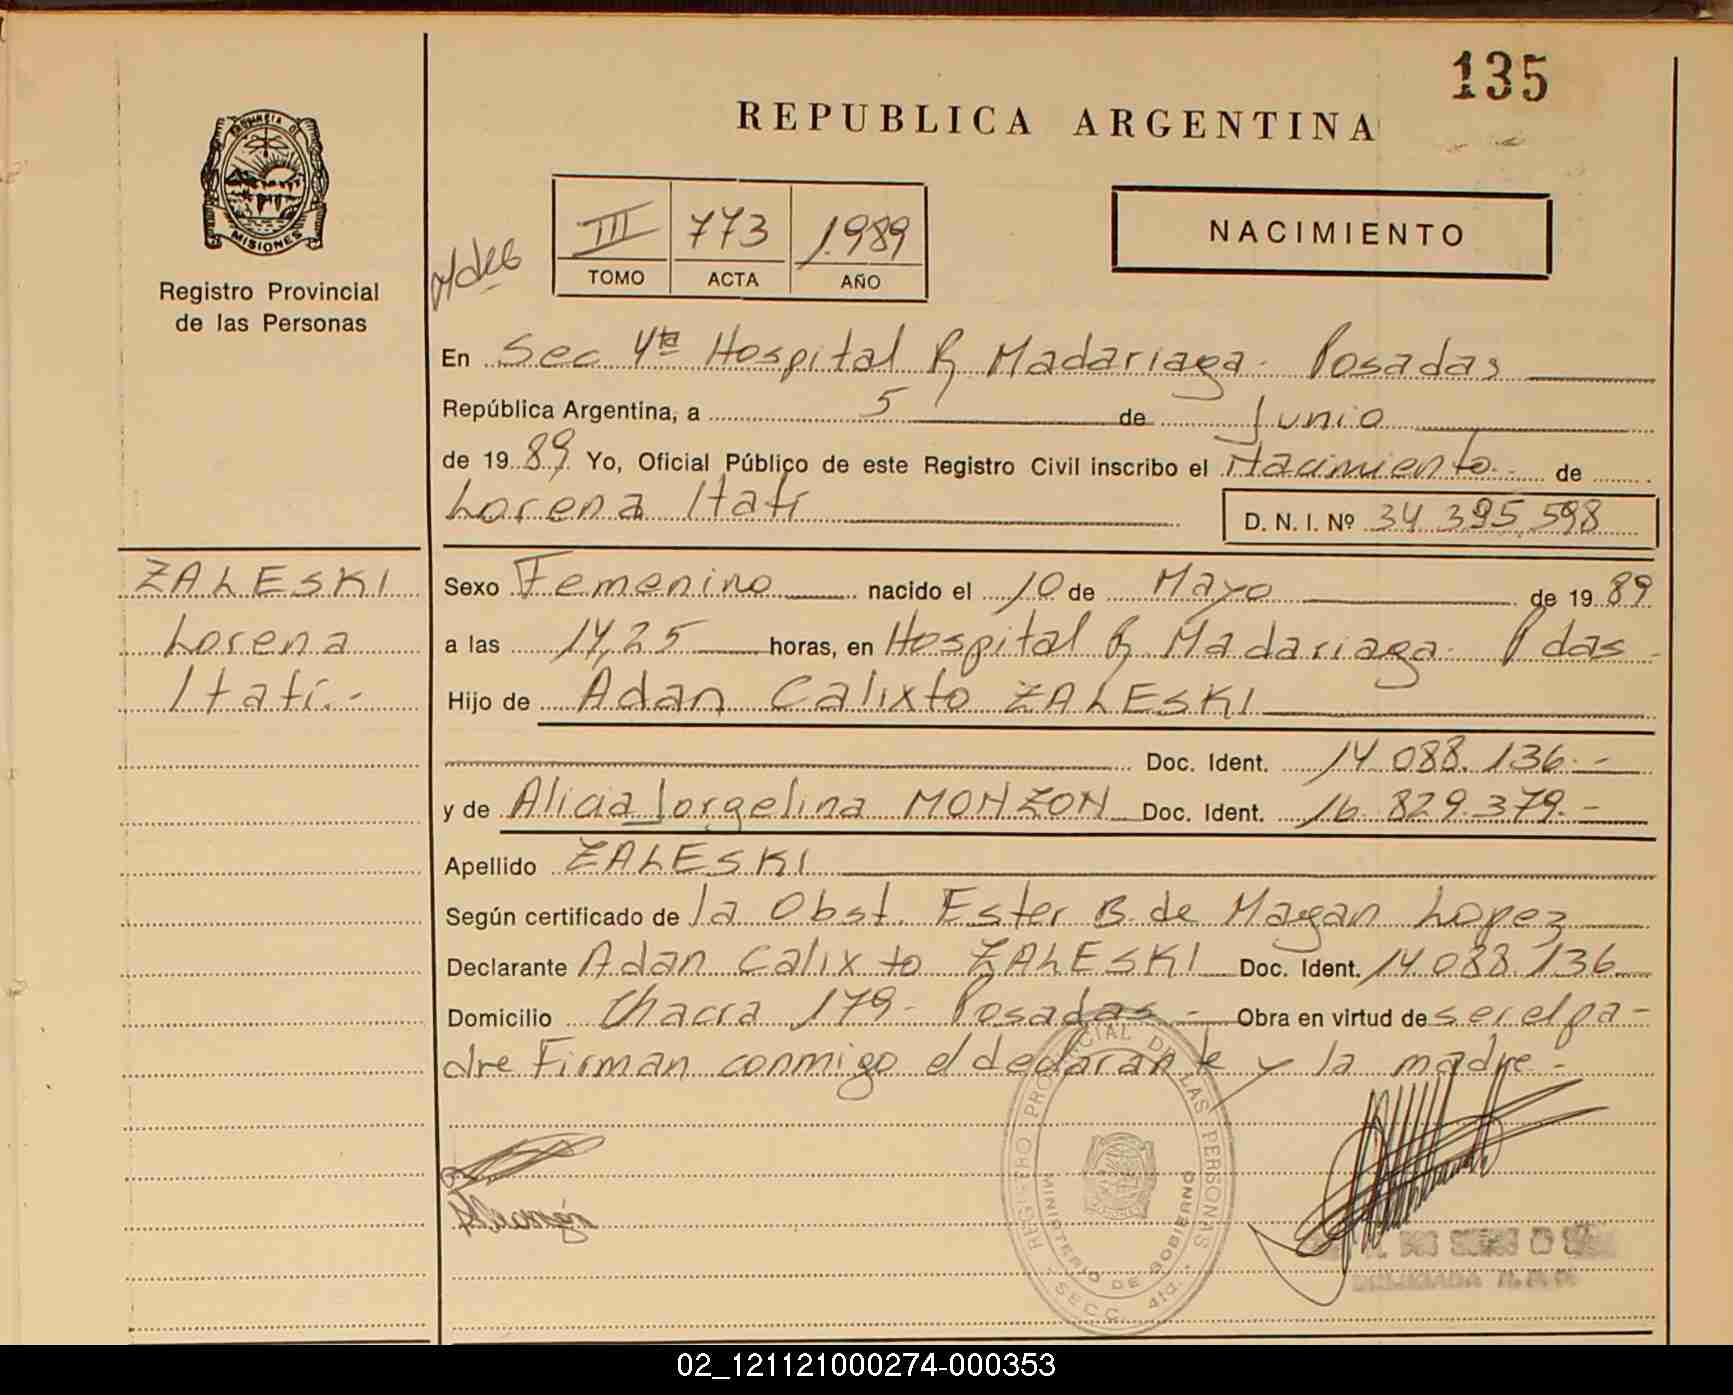 135
REPUBLICA ARGENTINA
PROVINCIA DE
MISIONES
Registro Provincial
de las Personas
III 773 1.989
TOMO ACTA AÑO
NACIMIENTO
En Sec 4ta Hospital R. Madariaga - Posadas
República Argentina, a 5 de Junio
de 1989 Yo, Oficial Público de este Registro Civil inscribo el Nacimiento de
Lorena Itatí D. N. I. Nº 34 395.598
ZALESKI
Lorena
Itatí.-
Sexo Femenino nacido el 10 de Mayo de 1989
a las 14,25 horas, en Hospital R. Madariaga - Pdas -
Hijo de Adan Calixto ZALESKI
Doc. Ident. 14 088.136.-
y de Alicia Jorgelina MONZON Doc. Ident. 16.829.379.-
Apellido ZALESKI
Según certificado de la Obst. Ester B. de Magan Lopez
Declarante Adan Calixto ZALESKI Doc. Ident. 14.088.136
Domicilio Chacra 179 - Posadas - Obra en virtud de ser el pa-
dre Firman conmigo el declarante y la madre.-
REGISTRO PROVINCIAL DE LAS PERSONAS
MINISTERIO DE GOBIERNO
SECC. 4ta.
02_121121000274-000353